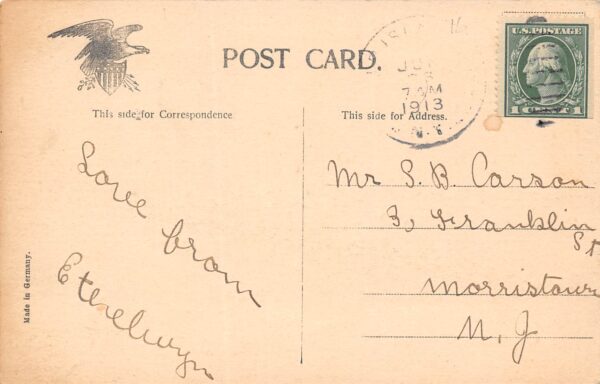 POST CARD.
JU
7 AM
1913
N.Y.
U.S. POSTAGE
1 CENT 1
This side for Correspondence.
This side for Address.
Love from
Ethelwyn
Mr S. B. Carson
3, Franklin
St
Morristown
N. J
Made in Germany.